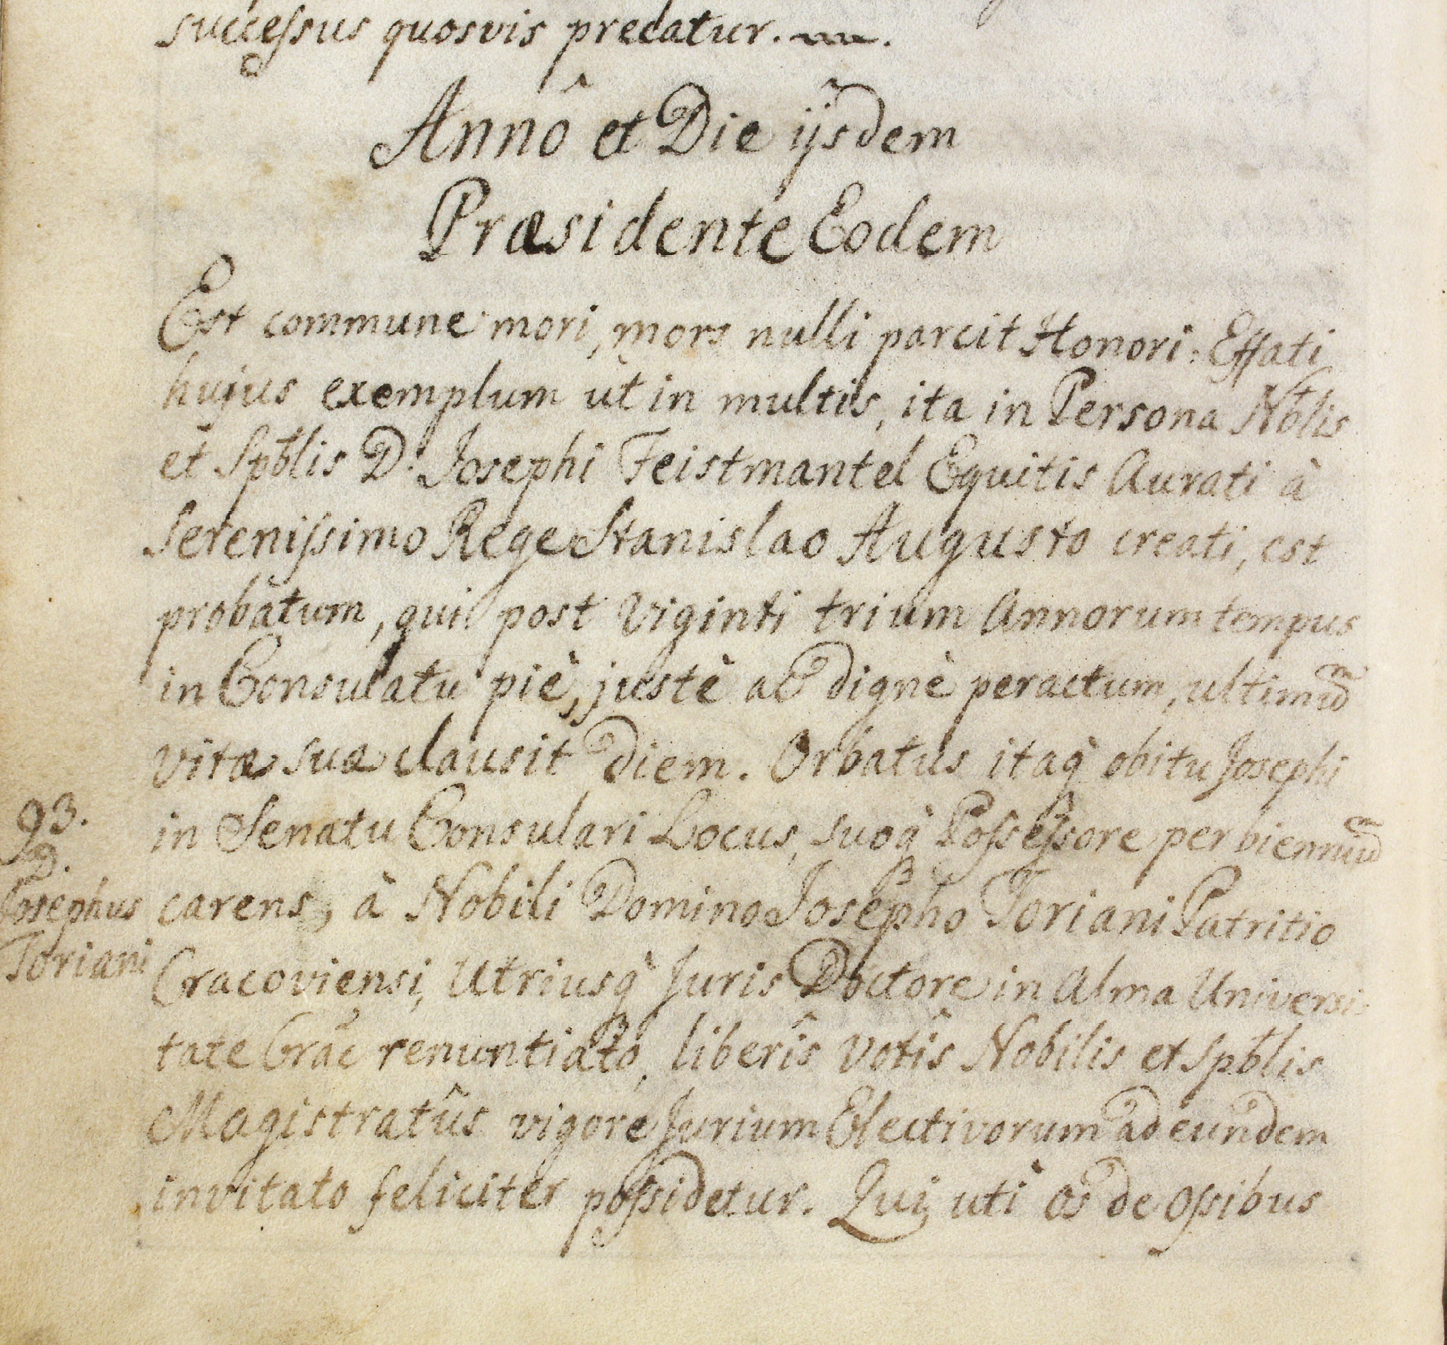 succeſsus quosvis precatur.
Annô et Die ijsdem
Præsidente Eodem
Est commune mori, mors nulli parcit Honori: Effati
hujus exemplum ut in multis, ita in Persona Nblis
et Spblis D. Josephi Feistmantel Equitis Aurati à
Sereniſsimo Rege Stanislao Augusto creati, est
probatum, qui post viginti trium Annorum tempus
in Consulatu piè, justè ac dignè peractum, ultimũ
vitæ suæ clausit diem. Orbatus itaq̀ obitu Josephi
in Senatu Consulari Locus, suoq̀ Poſseſsore per bienniũ
carens, à Nobili Domino Josepho Toriani Patritio
Cracoviensi, Utriusq̀ Juris Doctore in Alma Universi-
tate Crac̃ renuntiato, liberîs votîs Nobilis et Spblis
Magistratûs vigore Jurium Electivorum ad eundem
invitato feliciter poſsidetur. Qui, uti os de oſsibus
93.
D.
Josephus
Toriani